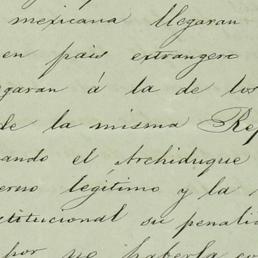 mexicana llegaran
en pais extrangero
garan á la de los
de la misma Rep
ando el Archiduque
erno legítimo y la
titucional su penali
por no haberla co